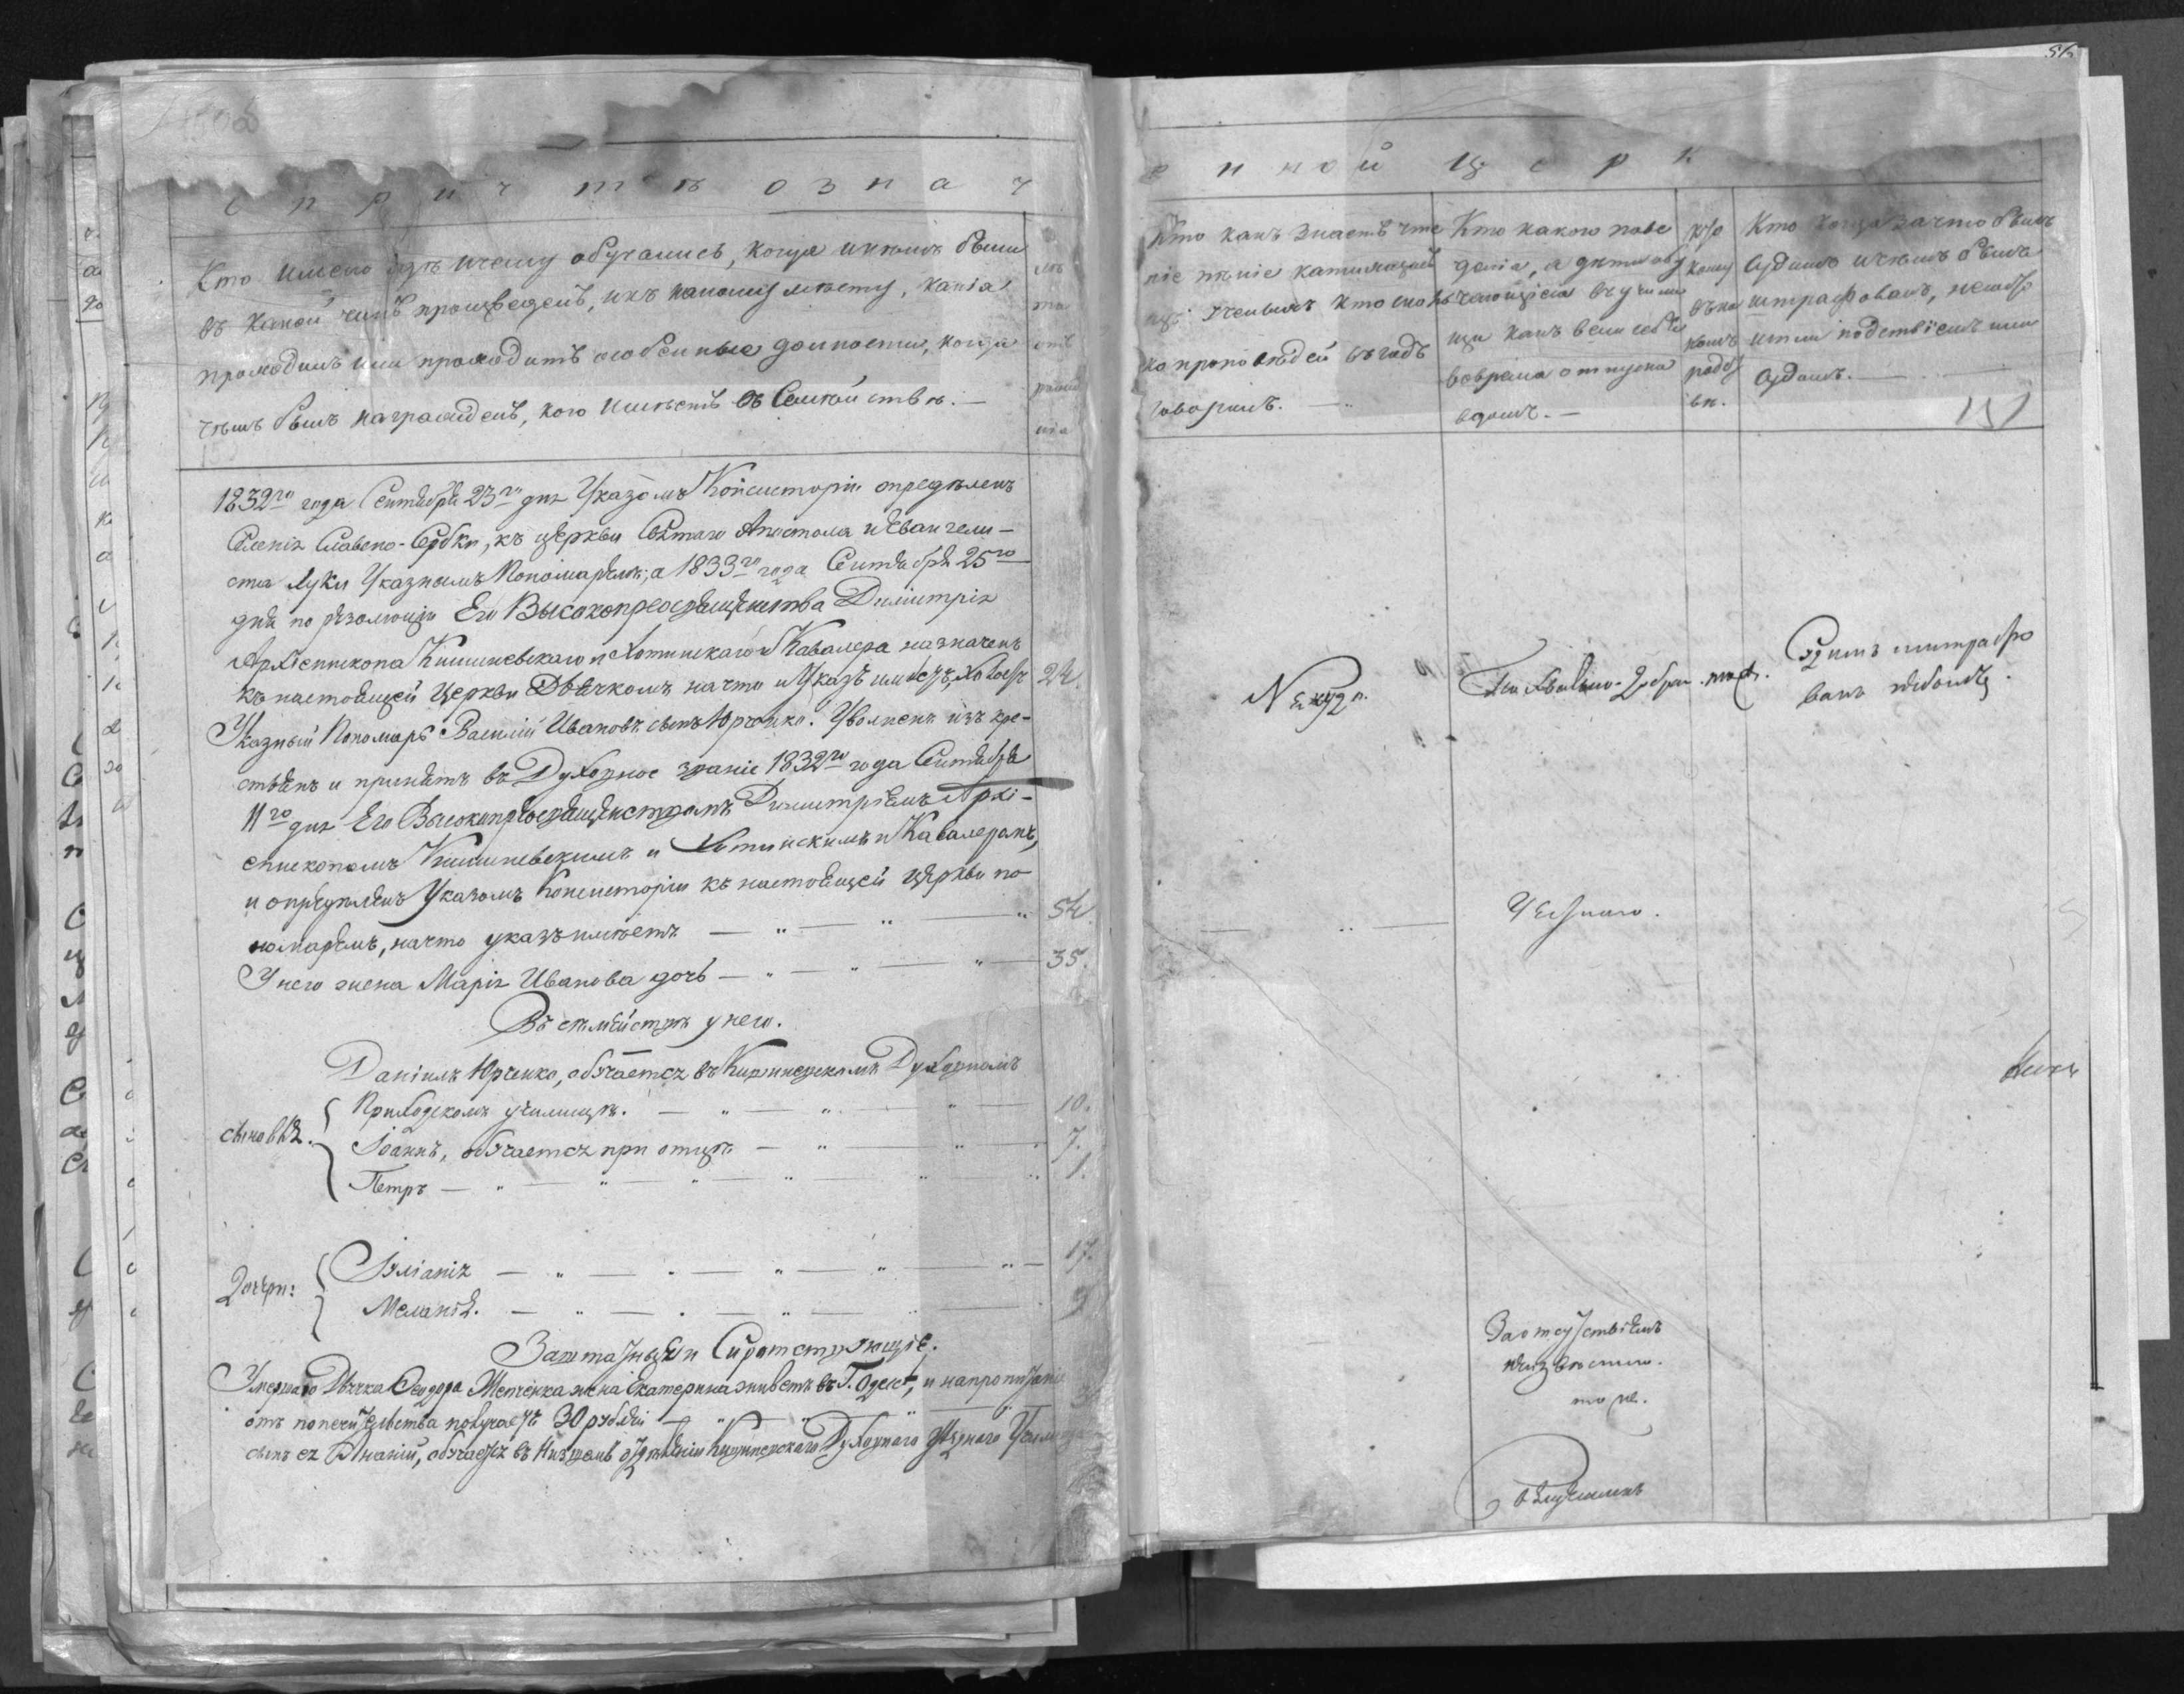 о причтѣ означ
Кто имено гдѣ и чему обучались, когда и кѣмъ былъ
въ какой чинъ произведенъ, и къ какому мѣсту, какія
проходилъ или проходитъ особенные должности, когда
чѣмъ былъ награжденъ, кого имѣетъ въ Семействѣ. —
лѣ
та
отъ
рожд
нія
1832го года Сентября 23го дня Указомъ Консисторіи опредѣленъ
Селенія Славено-Сербки, къ церкви Святаго Апостола и Евангели-
ста Луки Указнымъ Пономаремъ; а 1833го года Сентября 25го
дня по резолюціи Его Высокопреосвященства Димитрія
Архіепископа Кишиневскаго и Хотинскаго и Кавалера назначенъ
къ настоящей Церкви Дьячкомъ, на что и Указъ имѣетъ, холостъ 24.
Указный Пономарь Василій Ивановъ сынъ Юрченко. Уволненъ изъ кре-
стьянъ и принятъ въ Духовное званіе 1832го года Сентября
11го дня Его Высокопреосвященствомъ Димитріемъ Архі-
епископомъ Кишиневскимъ и Хотинскимъ и Кавалеромъ,
и опредѣленъ Указомъ Консисторіи къ настоящей церкви по-
номаремъ, на что указъ имѣетъ — 54.
У него жена Марія Иванова дочь — 35.
Въ семействѣ у него.
Даніилъ Юрченко, обучается въ Кишиневскомъ Духовномъ
Приходскомъ училищѣ. — 10.
сыновья.
Іоаннъ, обучается при отцѣ — 7.
Петръ — 1.
Іуліанія — 17.
Дочери:
Меланія. —
Заштатныя и Сиротствующіе.
Умершаго Дьячка Ѳеодора жена Екатерина живетъ въ Г. Одессѣ, и на пропитаніе
отъ попечительства получаетъ 30 рублей —
сынъ ея Игнатій, обучается въ Низшемъ отдѣленіи Кишиневскаго Духовнаго Уѣзднаго Училища
нной церк
Кто какъ знаетъ чте
ніе пѣніе катихизисъ
и кто сколь
ко проповѣдей въ годъ
говорилъ. —
Кто какого пове
денія, а дѣти обу
чающіеся въ учили
щи какъ вели себя
во время отпуска
въ домъ. —
кто
кому
въ ка
комъ
родс
вѣ.
Кто когда за что былъ
судимъ и чѣмъ былъ
штрафованъ, не
подъ слѣдствіемъ или
судомъ. —
151
Не худо.
добраго
Судимъ и штрафо
ванъ небылъ.
Честнаго.
За отсутствіемъ
неизвѣстно.